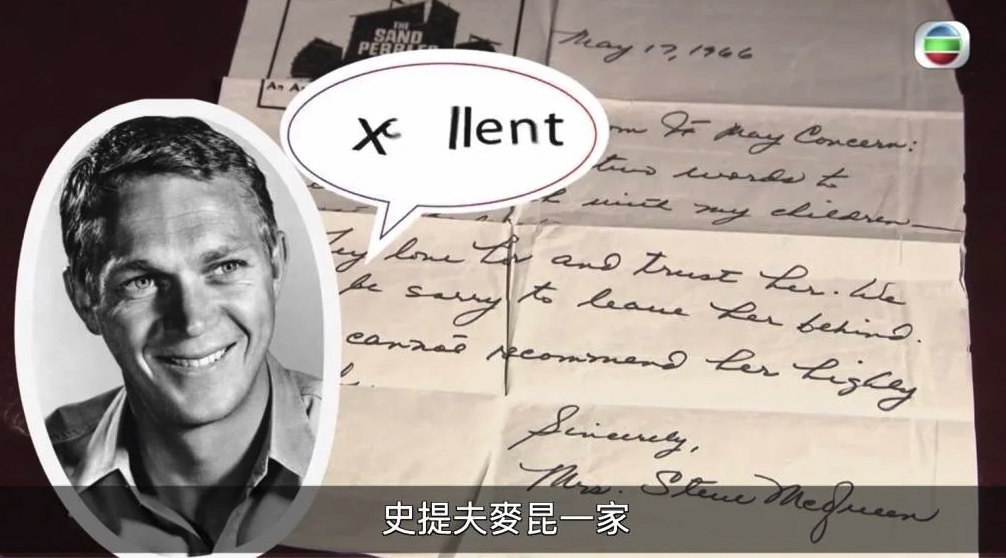 THE
SAND
PEBBLES
An A
May 17, 1966
x llent
om It May Concern:
two words to
with my children
love her and trust her. We
be sorry to leave her behind.
cannot recommend her highly
Sincerely,
Mrs. Steve McQueen
史提夫麥昆一家